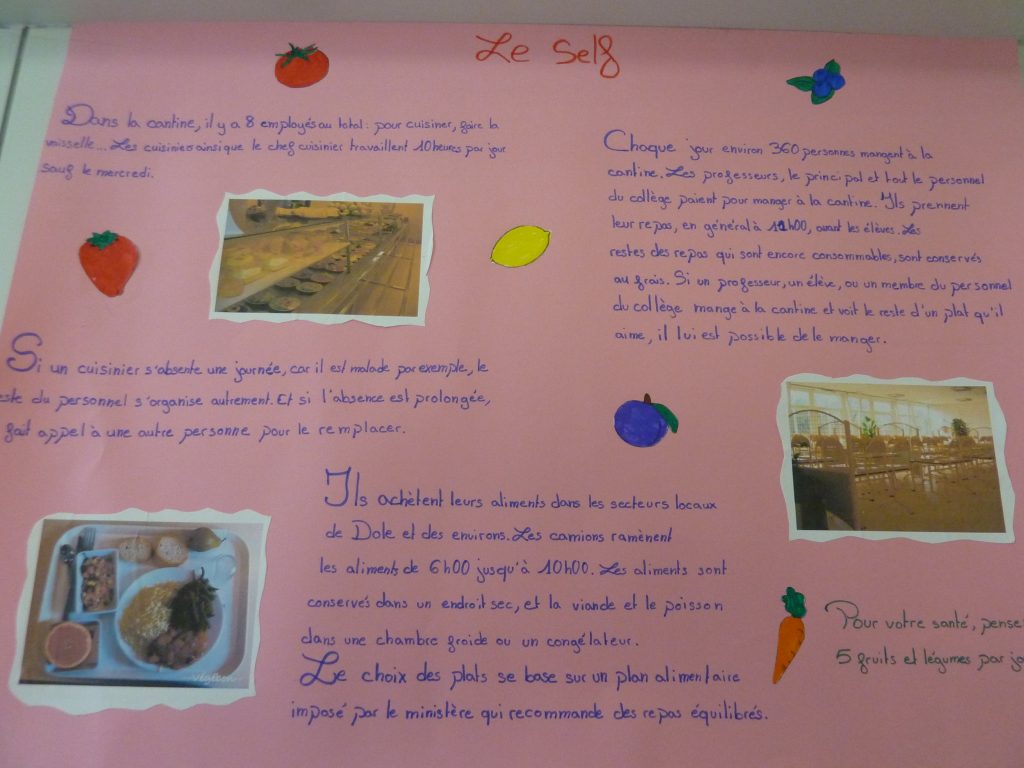 Le Self
Dans la cantine, il y a 8 employés au total : pour cuisiner, faire la
vaisselle... Les cuisiniers ainsi que le chef cuisinier travaillent 10 heures par jour
sauf le mercredi.
Chaque jour environ 360 personnes mangent à la
cantine. Les professeurs, le principal et tout le personnel
du collège paient pour manger à la cantine. Ils prennent
leur repas, en général à 11h00, avant les élèves. Les
restes des repas qui sont encore consommables, sont conservés
au frais. Si un professeur, un élève, ou un membre du personnel
du collège mange à la cantine et voit le reste d'un plat qu'il
aime, il lui est possible de le manger.
Si un cuisinier s'absente une journée, car il est malade par exemple, le
este du personnel s'organise autrement. Et si l'absence est prolongée,
fait appel à une autre personne pour le remplacer.
Ils achètent leurs aliments dans les secteurs locaux
de Dole et des environs. Les camions ramènent
les aliments de 6h00 jusqu'à 10h00. Les aliments sont
conservés dans un endroit sec, et la viande et le poisson
dans une chambre froide ou un congélateur.
Le choix des plats se base sur un plan alimentaire
imposé par le ministère qui recommande des repas équilibrés.
Pour votre santé, pense
5 fruits et légumes par jo